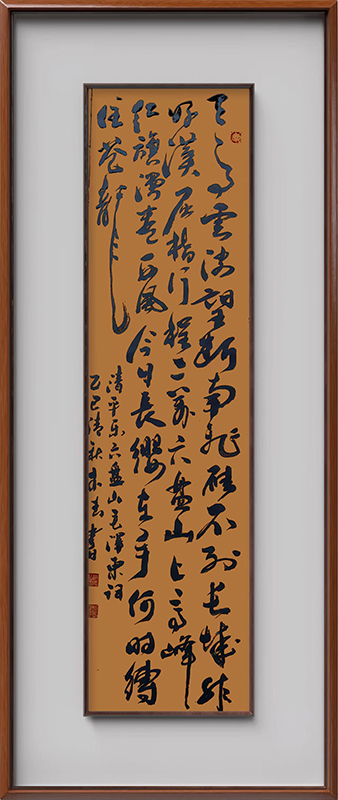 天高雲淡望断南飛雁不到长城非
好漢屈指行程二萬六盘山上高峰
红旗漫卷西風今日长缨在手何时缚
住苍龍
清平乐六盘山毛泽东词
乙巳清秋書